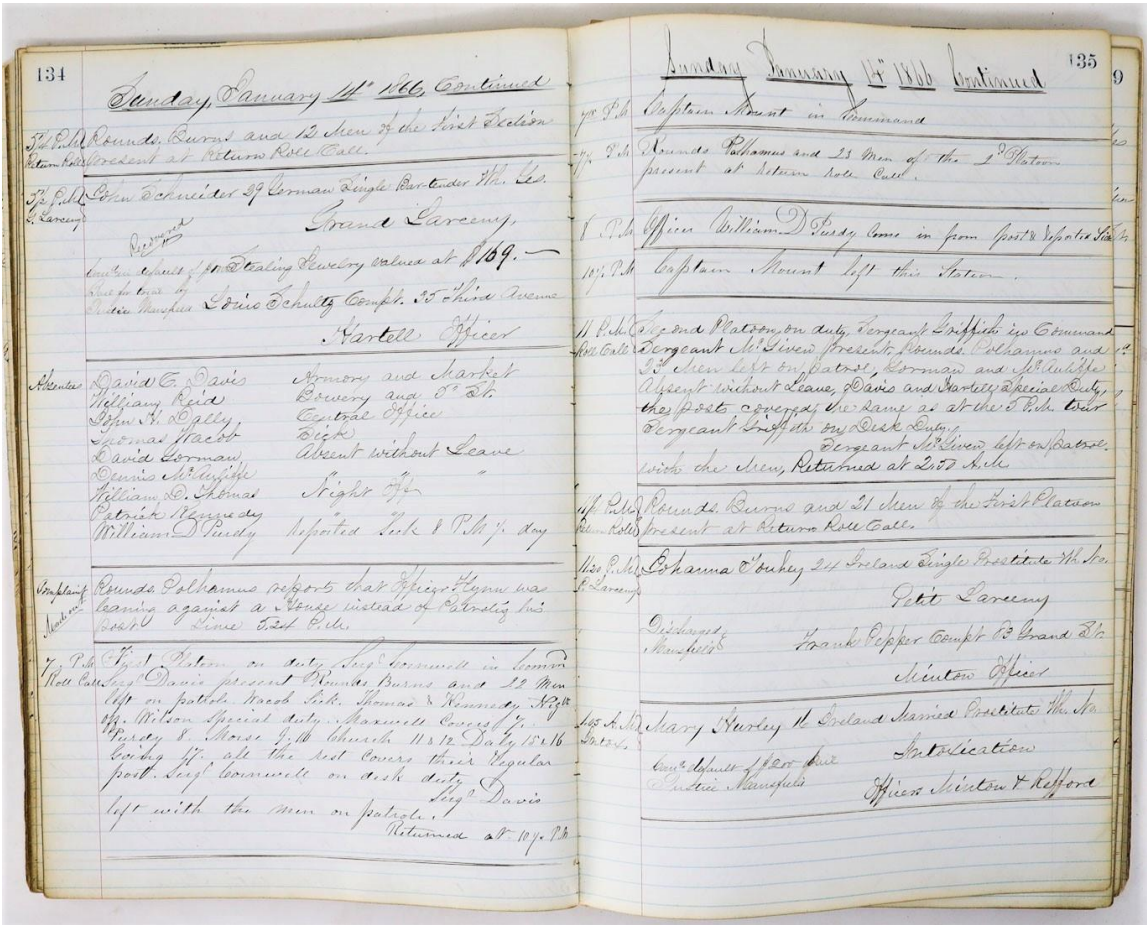 134
Sunday, January 14th 1866, Continued
5¼ P.M. Rounds. Burns and 12 Men of the First Section
Return Roll present at Return Roll Call.
5½ P.M. John Schneider 29 German Single Bar-tender Wh. Yes.
G. Larceny
Grand Larceny,
Recovered
Stealing Jewelry valued at $169.—
Justice Mansfield Louis Schultz Compt. 35 Third Avenue
Hartell Officer
Absentees David C. Davis Armory and Market
William Reid Bowery and 5th St.
John H. Dally Central Office
Thomas Wacob Sick
David Gorman Absent without Leave
Dennis McAuliffe " " "
William D. Thomas Night Off
Patrick Kennedy "
William D Purdy Reported Sick 8 P.M. day
Complaint Rounds. Polhamus reports that Officer Flynn was
Made on leaning against a House instead of Patrolig his
post Time 5.24 P.M.
7 P.M. First Platoon on duty Sergt Cornwell in Comm
Roll Call Sergt Davis present Rounds Burns and 22 Men
left on patrole Wacob Sick. Thomas & Kennedy Night
off. Wilson special duty. Maxwell Covers 7.
Purdy 8. Morse 9.10 Church 11 & 12 Daly 15 & 16
Going 17. all the rest covers their Regular
post. Sergt Cornwell on desk duty
Sergt Davis
left with the men on patrole.
Returned at 10½ P.M
135
Sunday January 14th 1866 Continued
P.M Captain Mount in Command
P.M Rounds Polhamus and 23 Men of the 2d Platoon
present at Return Role Call.
8 P.M Officer William D Purdy Come in from post & reported Sick
10½ P.M Captain Mount left this Station.
11 P.M. Second Platoon, on duty, Sergeant Griffith in Command
Roll Call Sergeant McGiven present, Rounds. Polhamus and
23 Men left on Patrol, Gorman and McAuliffe
Absent without Leave, Davis and Hartell Special Duty,
the posts covered the same as at the 5 P.M. tour
Sergeant Griffith on Desk Duty,
Sergeant McGiven left on Patrol
with the Men, Returned at 2.50 A.M
11¼ P.M. Rounds. Burns and 21 Men of the First Platoon
Return Roll present at Return Roll Call.
11.20 P.M. Johanna Touhey 24 Ireland Single Prostitute Wh. No.
P. Larceny
Petit Larceny
Discharged
Mansfield Frank Pepper Compt 83 Grand St.
Minton Officer
A.M. Mary Hurley Ireland Married Prostitute Wh. No
Intox.
Intoxication
Justice Mansfield
Officers Minton & Refford
9